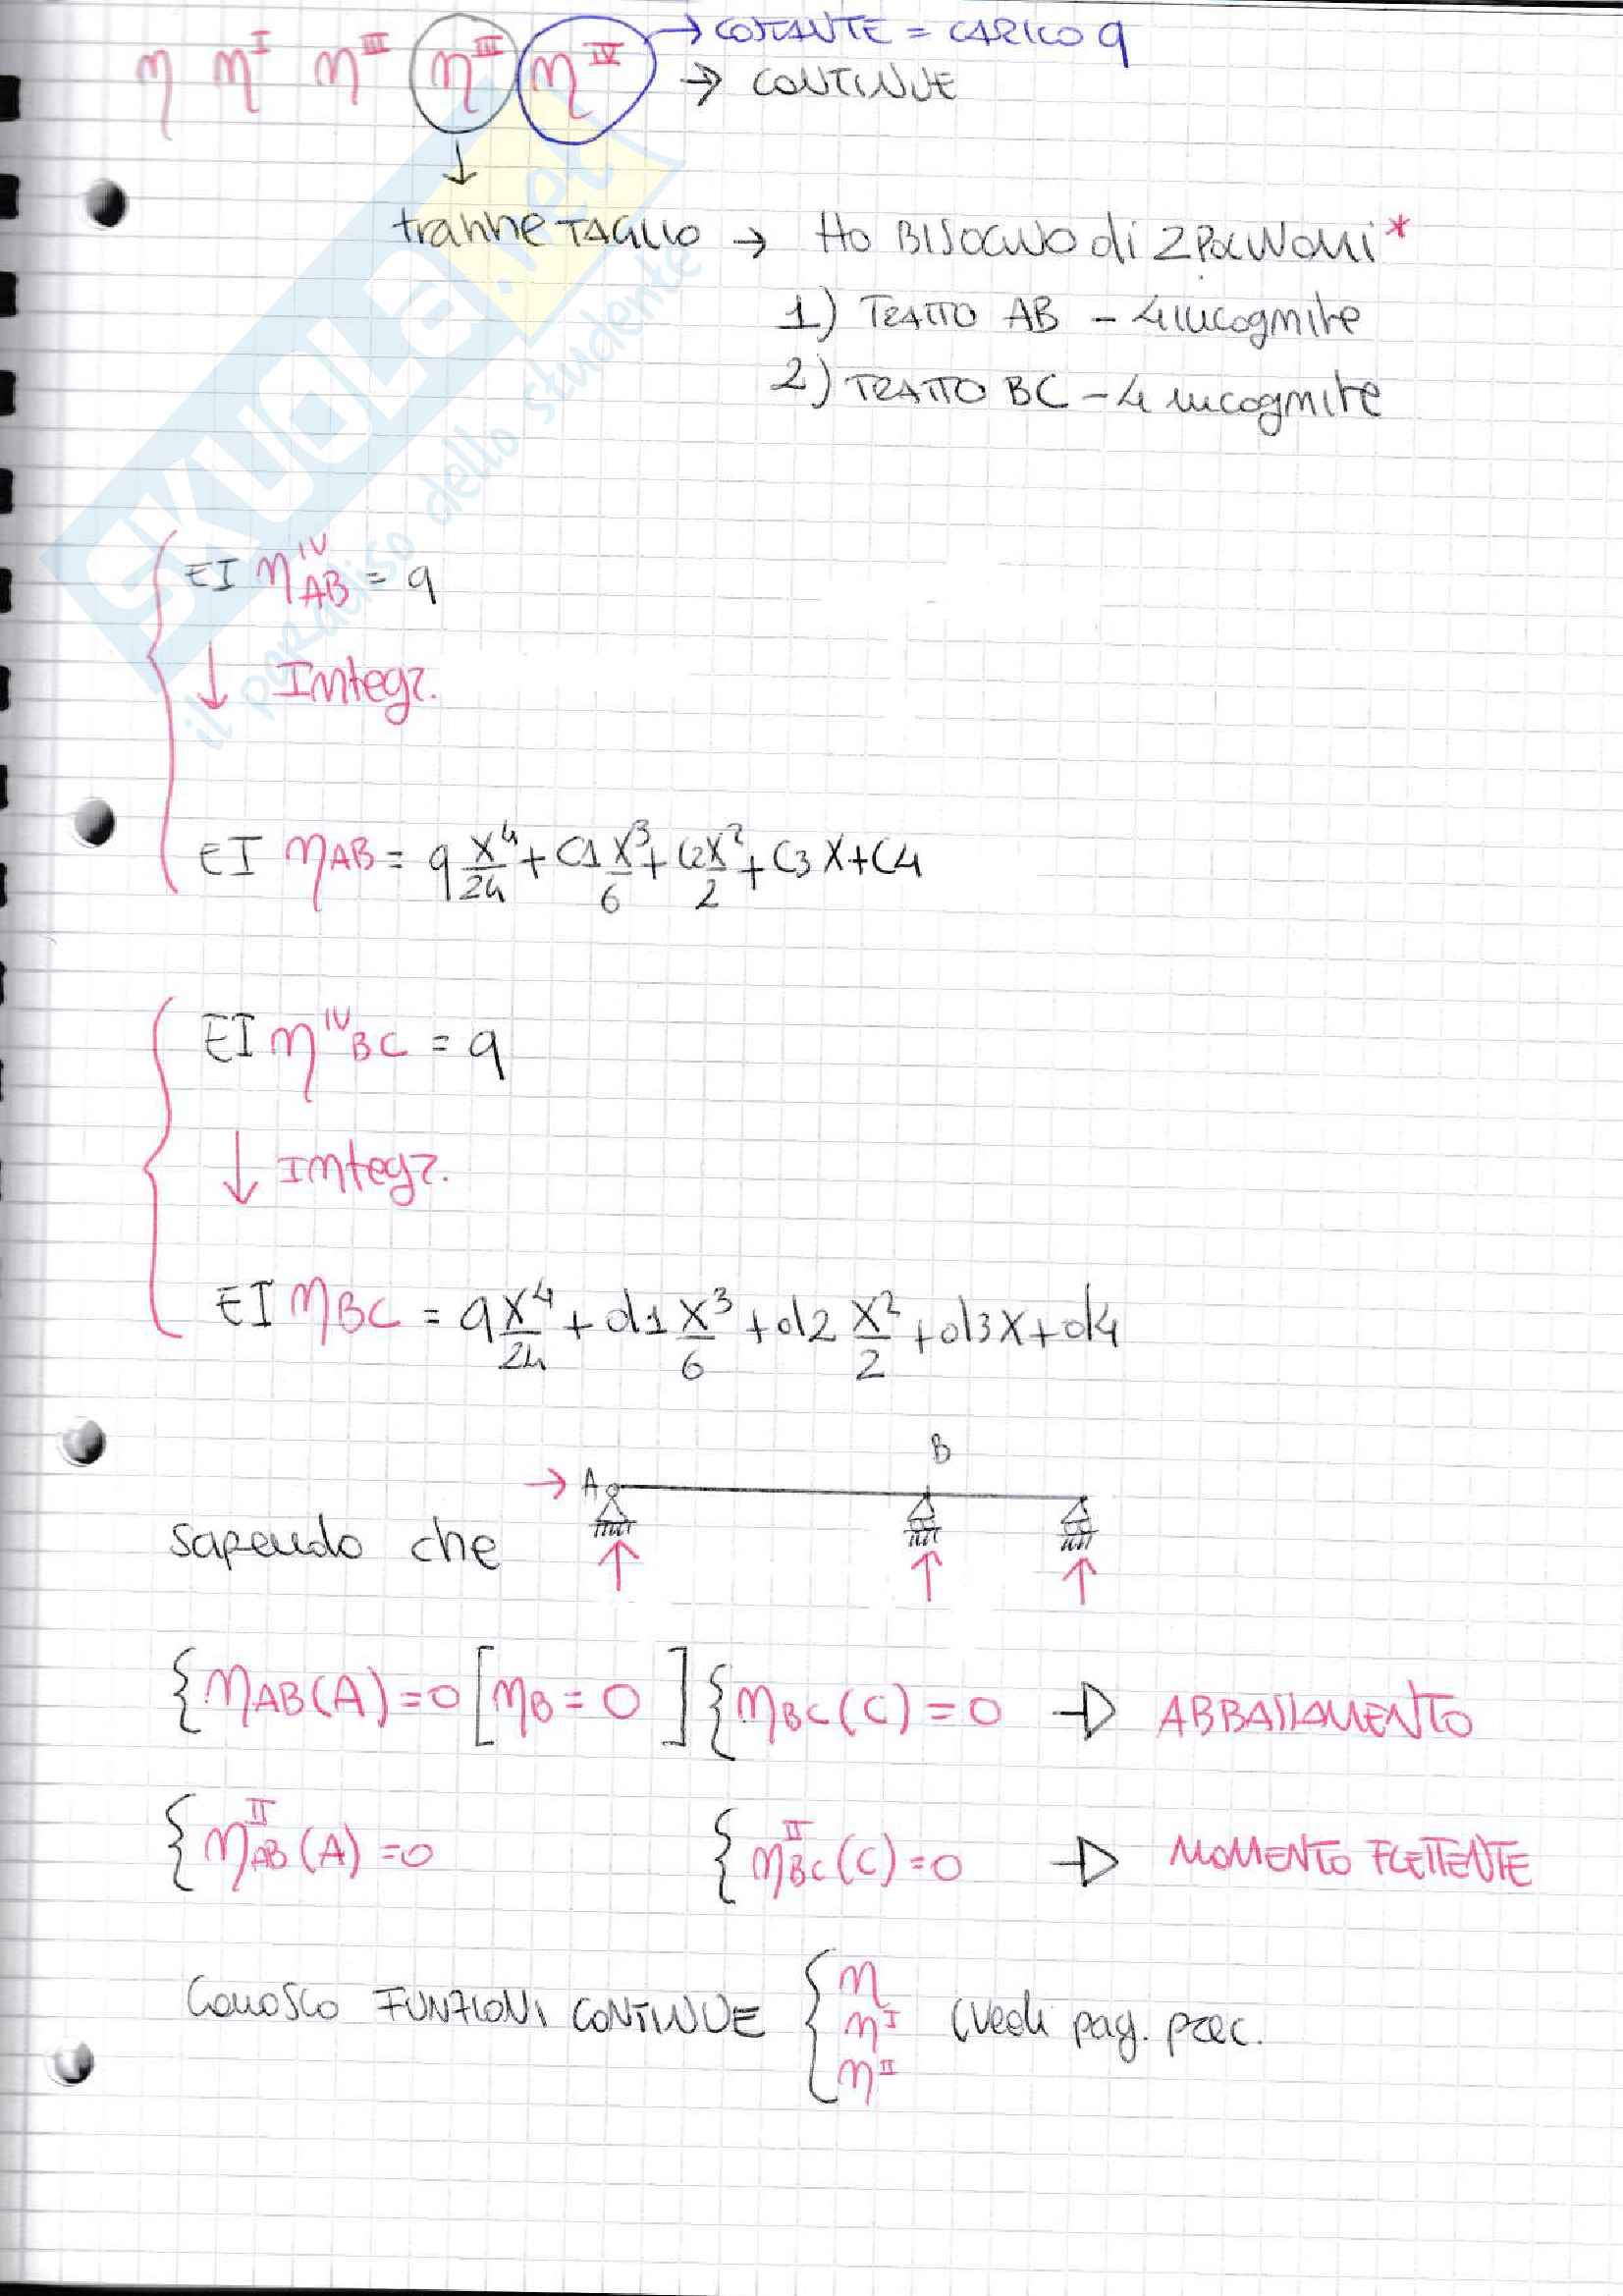 η η^I η^III η^III η^IV → COSTANTE = CARICO q
→ CONTINUE
↓
tranne TAGLIO → HO BISOGNO di 2 POLINOMI *
1) TRATTO AB - 4 incognite
2) TRATTO BC - 4 incognite
SKUOLA.net
il paradiso dello studente
EI η^IV_AB = q
↓ Integr.
EI η_AB = q x^4/24 + C1 x^3/6 + C2 x^2/2 + C3 x + C4
EI η^IV_BC = q
↓ Integr.
EI η_BC = q x^4/24 + d1 x^3/6 + d2 x^2/2 + d3 x + d4
B
→ A
Sapendo che
{ η_AB(A) = 0 [ η_B = 0 ] { η_BC(C) = 0 → ABBASSAMENTO
{ η^II_AB(A) = 0 { η^II_BC(C) = 0 → MOMENTO FLETTENTE
Conosco FUNZIONI CONTINUE { η
η^I (vedi pag. prec.
η^II